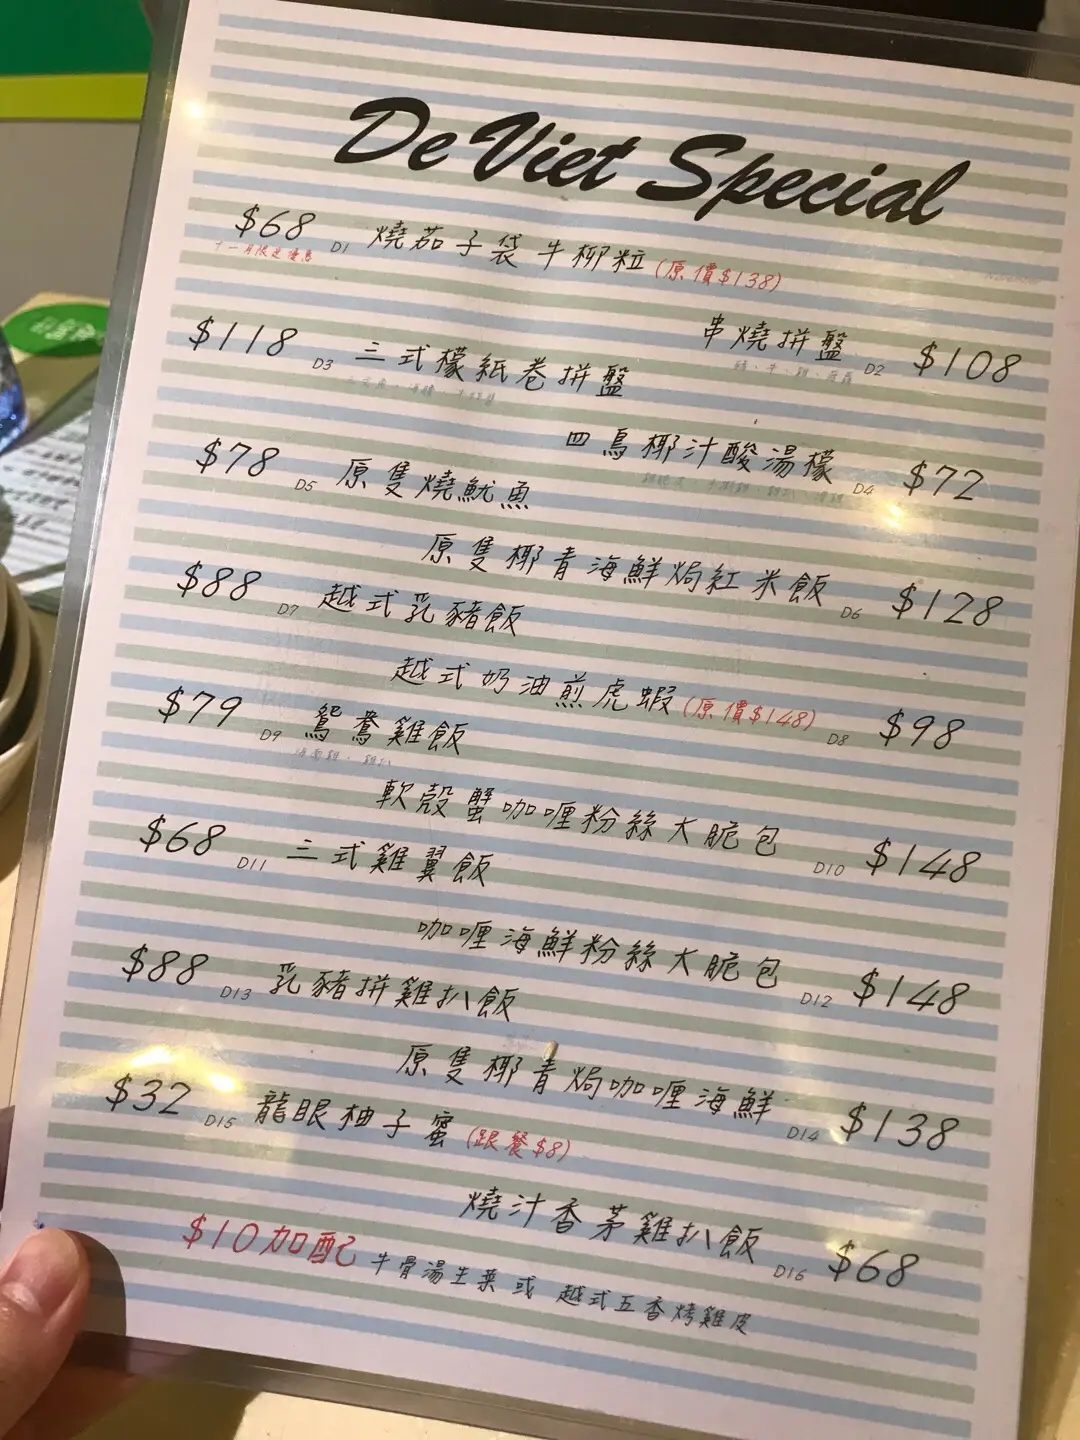 De Viet Special
$68 D1 燒茄子袋牛柳粒 (原價$138)
十一月限定優惠
串燒拼盤 D2 $108
$118 D3 三式檬紙卷拼盤
四鳥椰汁酸湯檬 D4 $72
$78 D5 原隻燒魷魚
原隻椰青海鮮焗紅米飯 D6 $128
$88 D7 越式乳豬飯
越式奶油煎虎蝦 (原價$148) D8 $98
$79 D9 鴛鴦雞飯
海南雞、雞扒
軟殼蟹咖喱粉絲大脆包 D10 $148
$68 D11 三式雞翼飯
咖喱海鮮粉絲大脆包 D12 $148
$88 D13 乳豬拼雞扒飯
原隻椰青焗咖喱海鮮 D14 $138
$32 D15 龍眼柚子蜜 (跟餐$8)
燒汁香茅雞扒飯 D16 $68
$10加配 牛骨湯生菜 或 越式五香烤雞皮